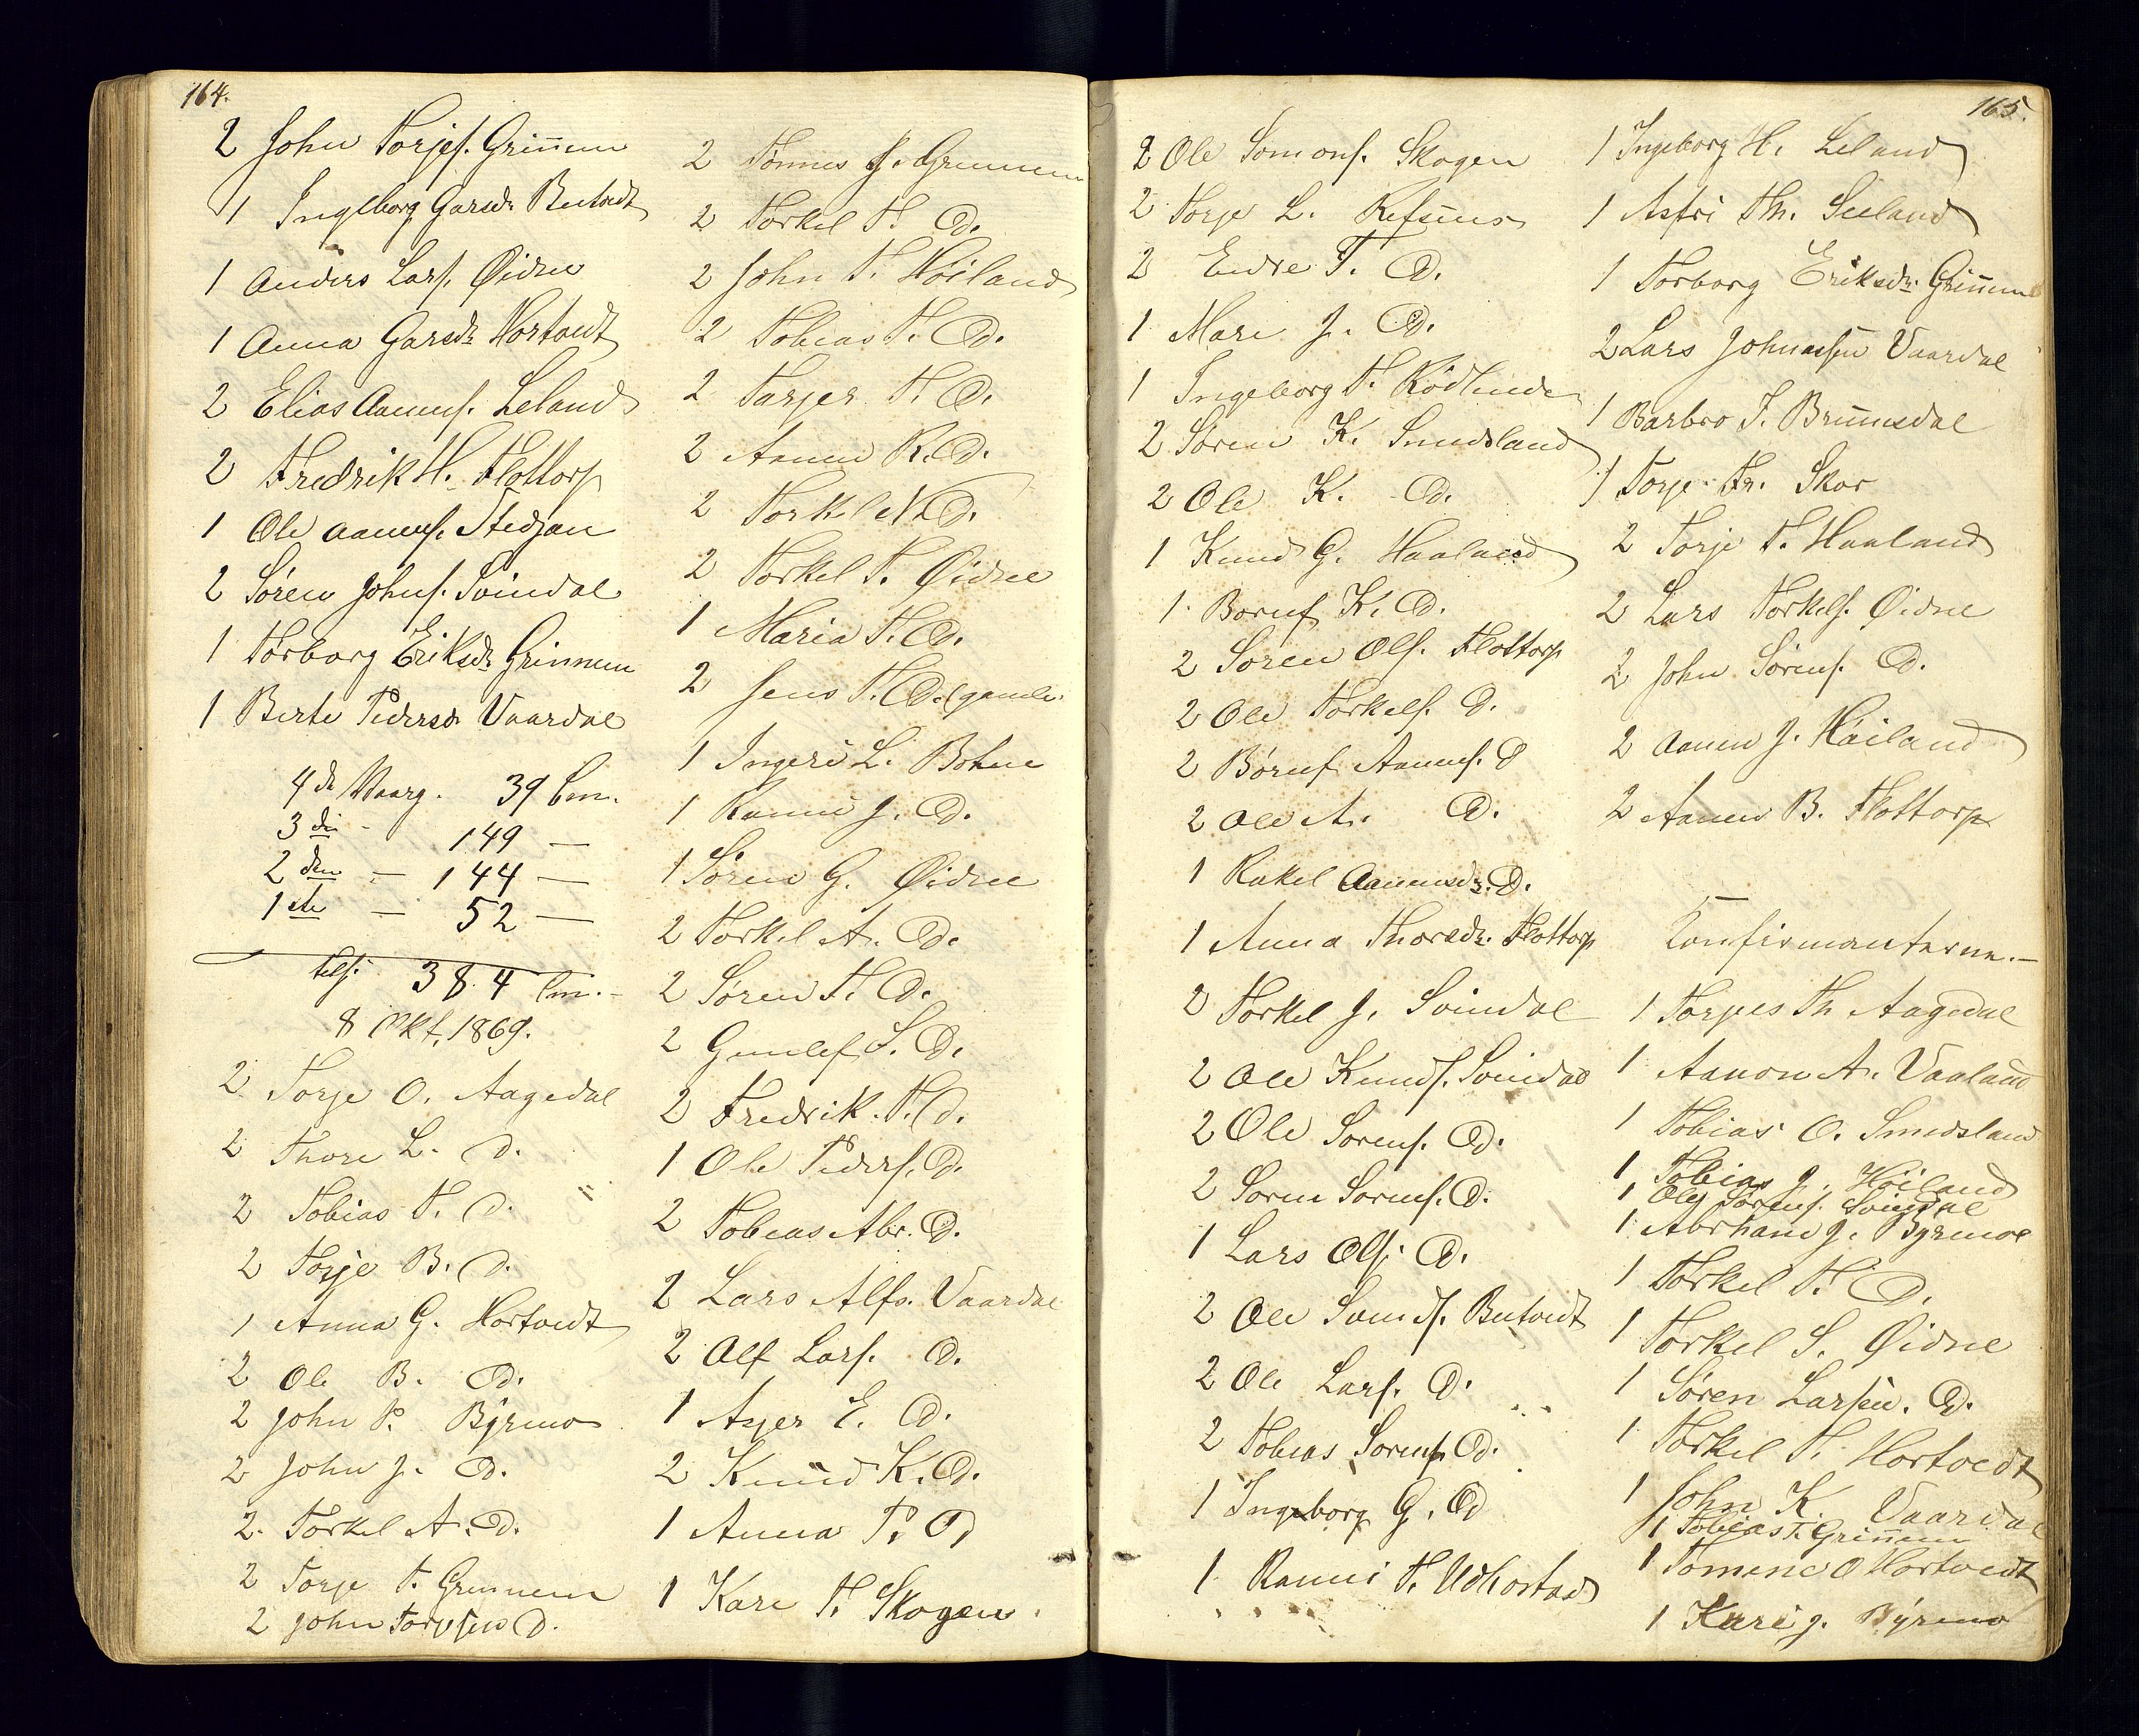 164.
2 John Torjes. Grinnem
1 Ingeborg Garsdr Butvedt
1 Anders Lars. Øidne
1 Anna Garsdr Hortvedt
2 Elias Aanens. Leland
2 Fredrik H. Flottorp
1 Ole Aanens. Stedjan
2 Søren Johns. Svindal
1 Torborg Eriksdr Grinnem
1 Berte Pedersd Vaardal
4de Maarg. 39 Cm.
3die - 149 —
2den — 144 —
1ste — 52 —
tils. 384 Cm.-
8 Okt. 1869.
2 Torje O. Aagedal
2 Thore L. D.
2 Tobias T. D.
2 Torje B. D.
1 Anna G. Hortvedt
2 Ole B. D.
2 John P. Byrmo
2 John J. D.
2. Torkel A. D.
2 Torje T. Grinnem
2 John Torjesen D.
2 Tønnes J. Grinnem
2 Torkel T. D.
2 John T. Høiland
2 Tobias T. D.
2 Tarjer T. D.
2 Aanen R. D.
2 Torkel N. D.
2 Torkel T. Øidne
1 Maria T. D.
2 Jens T. D. (gamle
1 Ingeri L. Bohne
1 Ranni J. D.
1 Søren G. Øidne
2 Torkel A. D.
2 Søren T. D.
2 Gunlef S. D.
2 Fredrik T. D.
1 Ole Peders. D.
2 Tobias Abr. D.
2 Lars Alfs. Vaardal
2 Alf Lars. D.
1 Asjer E. D.
2 Knud K. D.
1 Anna P. D
1 Kare T. Skogen
165.
2 Ole Somons. Skogen
2 Torje L. Refsnes
2 Endre T. D.
1 Mari J. D.
1 Ingeborg T. Rødlinde
2 Søren K. Smedsland
2 Ole K. D.
1 Knud G. Haaland
1. Boruf K. D.
2 Soren Ols. Flottorp
2 Ole Torkels. D.
2 Børuf Aanens. D
2 Ole A. D.
1 Rakel Aanensdr. D.
1 Anna Thorsdr. Flottorp
2 Torkel J. Svindal
2 Ole Knuds. Svindal
2 Ole Sorens. D.
2 Soren Sorens. D.
1 Lars Ols. D.
2 Ole Sven. Butvedt
2 Ole Lars. D.
2 Tobias Sorens. D.
1 Ingeborg G. D
1 Ranni T. Udhortved
1 Ingeborg H. Leland
1 Asfri Th. Seland
1 Torborg Eriksdr. Grinnem
2 Lars Johnassen Vaardal
1 Barbro J. Brunsdal
1 Torje Fr. Skor
2 Torje T. Haaland
2 Lars Torkels. Øidne
2 John Sørens. D.
2 Aanen J. Høiland
2 Aanen B. Flottorp
Konfirmanterne.—
1 Torjus Th Aagedal
1 Aanon A. Vaaland
1 Tobias O. Smedsland
1 Tobias J. Høiland
1 Ole Sørens. Svindal
1 Abrham J. Byrmoe
1 Torkel T. D.
1 Torkel S. Øidne
1 Søren Larsen. D.
1 Torkel T. Hortvedt
1 John K. Vaardal
1 Tobias T. Grinnem
1 Tomene O Hortvedt
1 Kari J. Byrmo